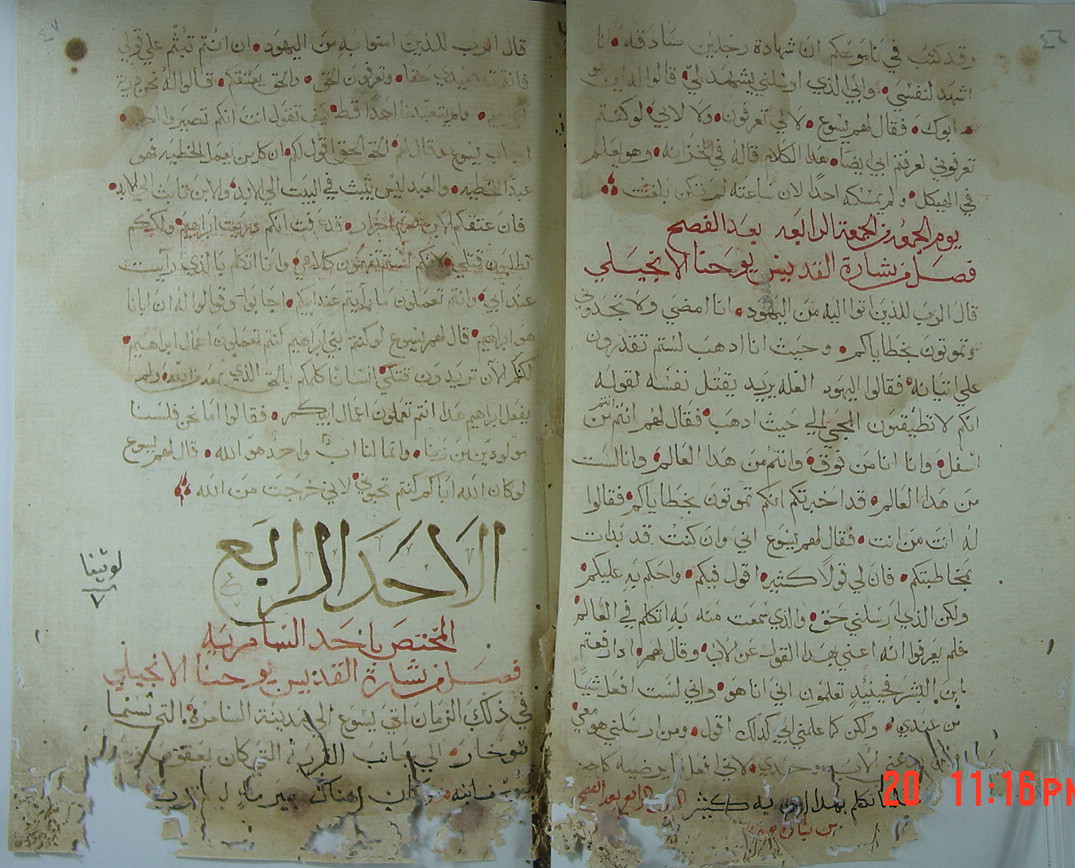 ٤٦
وقد كتب في ناموسكم ان شهادة رجلين صادقه • انا
اشهد لنفسي • وابي الذي ارسلني يشهد لي • قالوا له اين هو
ابوك • فقال لهم يسوع • لا لي تعرفون • ولا لابي • لو كنتم
تعرفوني لعرفتم ابي ايضا • هذا الكلام قاله في الخزانه • وهو يعلم
في الهيكل • ولم يمسكه احدا لان ساعته لم تكن بلغت
يوم الجمعه من الجمعة الرابعه بعد الفصح
فصل من بشارة القديس يوحنا الانجيلي
قال الرب للذين اتوا اليه من اليهود • انا امضي ولا تجدوني
وتموتون بخطاياكم • وحيث انا اذهب لستم تقدرون
علي اتيانه • فقالوا اليهود العله يريد يقتل نفسه لقوله
انكم لا تطيقون المجي الي حيث اذهب • فقال لهم انتم من
اسفل • وانا انا من فوق • وانتم من هذا العالم • وانا لست
من هذا العالم • قد اخبرتكم انكم تموتون بخطاياكم • فقالوا
له انت من انت • فقال لهم يسوع اني وان كنت قد بدات
بمخاطبتكم • فان لي قولا كثير • اقول فيكم • واحكم به عليكم •
ولكن الذي ارسلني حق • والذي سمعت منه به اتكلم في العالم
فلم يعرفوا انه اعني بهذا القول عن الاب • وقال لهم • اذا رفعتم
ابن البشر فحينيذ تعلمون اني انا هو • واني لست افعل شيا
من عندي • ولكن كما علمني ابي كذلك اقول • ومن ارسلني هو معي
الاب وحدي • لاني افعل ما يرضيه كل حين
تكلم بهذا امن به كثير
من نيسان
٤٧
قال الرب للذين امنوا به من اليهود • ان انتم ثبتم علي قولي
حقا • وتعرفون الحق • والحق يعتقكم • قالوا له نحن ذرية
ابرهيم • ولم يتعبدنا احدا قط • كيف تقول انت انكم تصيروا احرار •
اجاب يسوع وقال لهم الحق الحق اقول لكم • ان كل من يعمل الخطيه فهو
عبدا للخطيه • والعبد ليس يثبت في البيت الي الابد • والابن ثابت الي الابد
فان عتقكم الابن صرتم احرار • قد عرفت انكم ذرية ابراهيم • ولكنكم
تطلبون قتلي • لانكم لستم تفهمون كلامي • وانا اتكلم بالذي رايت
عند ابي • وانتم تعملون ما رايتم عند ابيكم • اجابوا وقالوا له ان ابانا
هو ابراهيم • قال لهم يسوع لو كنتم بني ابراهيم كنتم تعملون اعمال ابراهيم •
لكنكم الان تريدون تقتلي انسانا كلمكم بالحق الذي سمعه من الله • ولم
يفعل ابراهيم هذا • انتم تعملون اعمال ابيكم • فقالوا اما نحن فلسنا
مولودين من زنا • وانما لنا اب واحد هو الله • قال لهم يسوع
لو كان الله اباكم كنتم تحبوني لاني خرجت من الله
الاحد الرابع
لوتينا
٧
المختص باحد السامريه
فصل من بشارة القديس يوحنا الانجيلي
في ذلك الزمان اتي يسوع الي مدينة السامرة • التي تسما
سوخار • الي جانب القرية التي كان يعقوب
ليوسف ابنه • وكان هناك بير ما
20 11:16PM